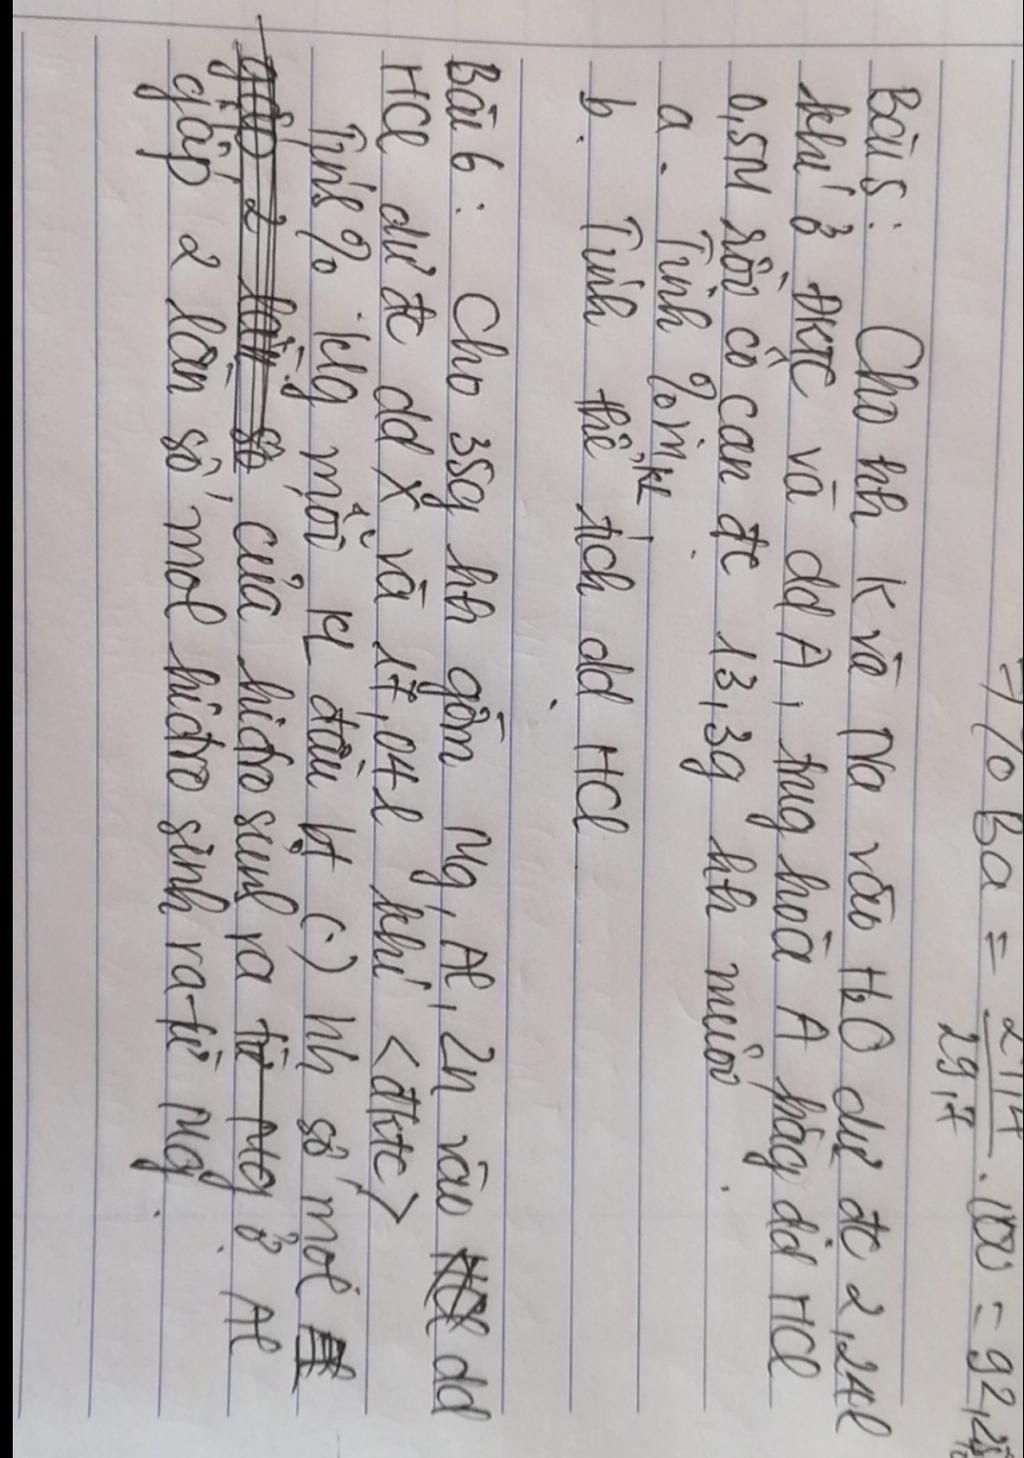 => % Ba = 27,4 / 29,7 . 100 = 92,25
Bài 5: Cho hh K và Na vào H2O dư đc 2,24l
khí ở ĐKTC và dd A, trug hoà A bằg dd HCl
0,5M rồi cô cạn đc 13,3g hh muối.
a. Tính %mKL
b. Tính thể tích dd HCl
Bài 6: Cho 35g hh gồm Mg, Al, Zn vào HCl dd
HCl dư đc dd X và 17,04l khí <đktc>
Tính % klg mỗi KL đầu bt (.) hh số mol
gấp 2 lần số của hidro sinh ra từ Mg ở Al
gấp 2 lần số mol hidro sinh ra từ Mg.